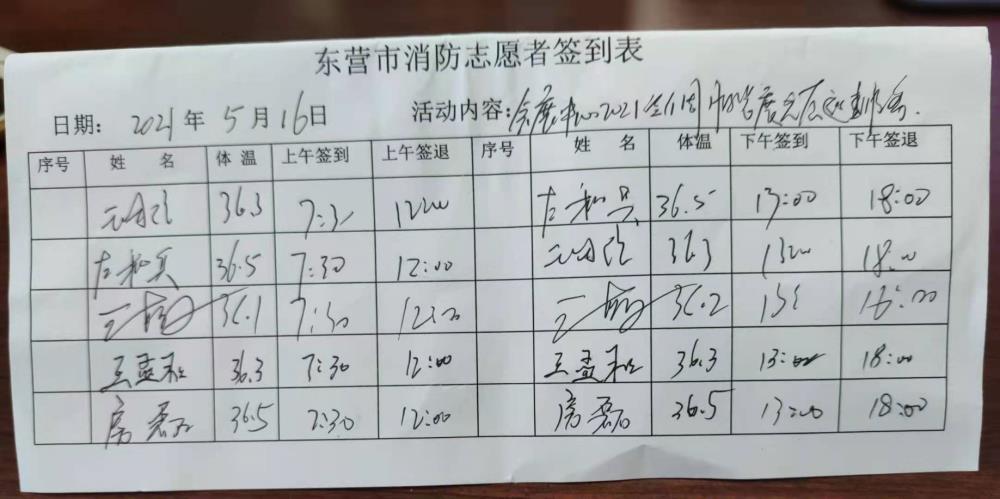 东营市消防志愿者签到表
日期： 2021年 5月16日 活动内容：会展中心2021
序号 姓 名 体 温 上午签到 上午签退 序号 姓 名 体温 下午签到 下午签退
36.3 7:30 12:00 左和兵 36.5 13:00 18:00
左和兵 36.5 7:30 12:00 36.3 13:00 18:00
36.1 7:30 12:00 36.2 18:00
王孟和 36.3 7:30 12:00 王孟和 36.3 13:00 18:00
房磊 36.5 7:30 12:00 房磊 36.5 13:00 18:00